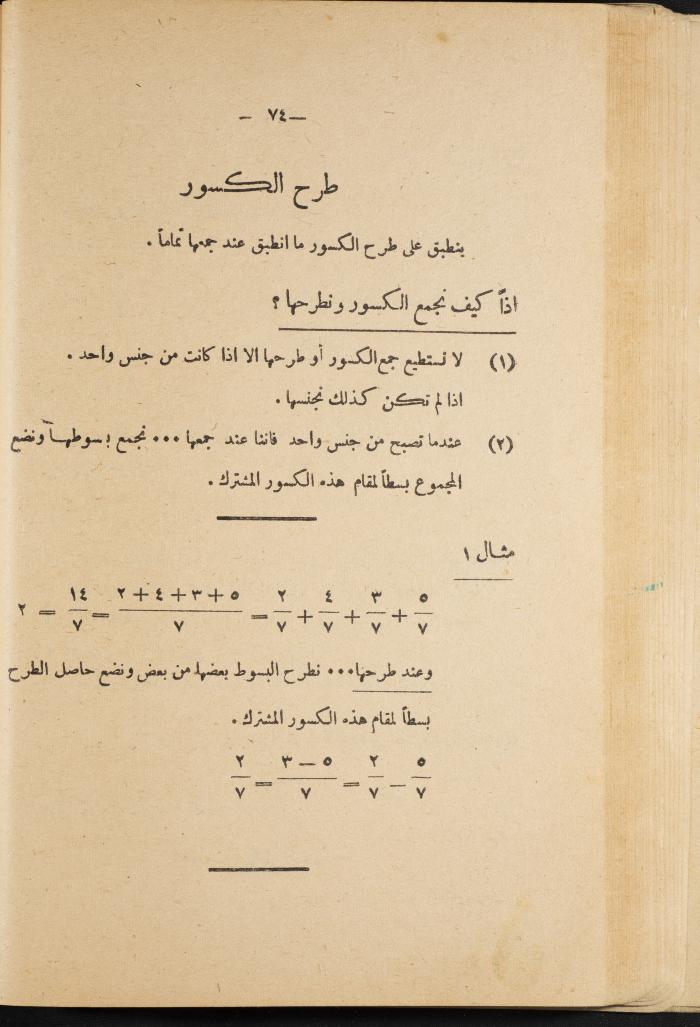 — ٧٤ —
طرح الكسور
ينطبق على طرح الكسور ما انطبق عند جمعها تماماً .
اذاً كيف نجمع الكسور ونطرحها ؟
(١) لا نستطيع جمع الكسور أو طرحها الا اذا كانت من جنس واحد .
اذا لم تكن كذلك نجنسها .
(٢) عندما تصبح من جنس واحد فاننا عند جمعها ٠٠٠ نجمع بسوطها ونضع
المجموع بسطاً لمقام هذه الكسور المشترك .
مثال ١
٥/٧ + ٣/٧ + ٤/٧ + ٢/٧ = ٥+٣+٤+٢/٧ = ١٤/٧ = ٢
وعند طرحها ٠٠٠ نطرح البسوط بعضها من بعض ونضع حاصل الطرح
بسطاً لمقام هذه الكسور المشترك .
٥/٧ — ٢/٧ = ٥ — ٣/٧ = ٢/٧